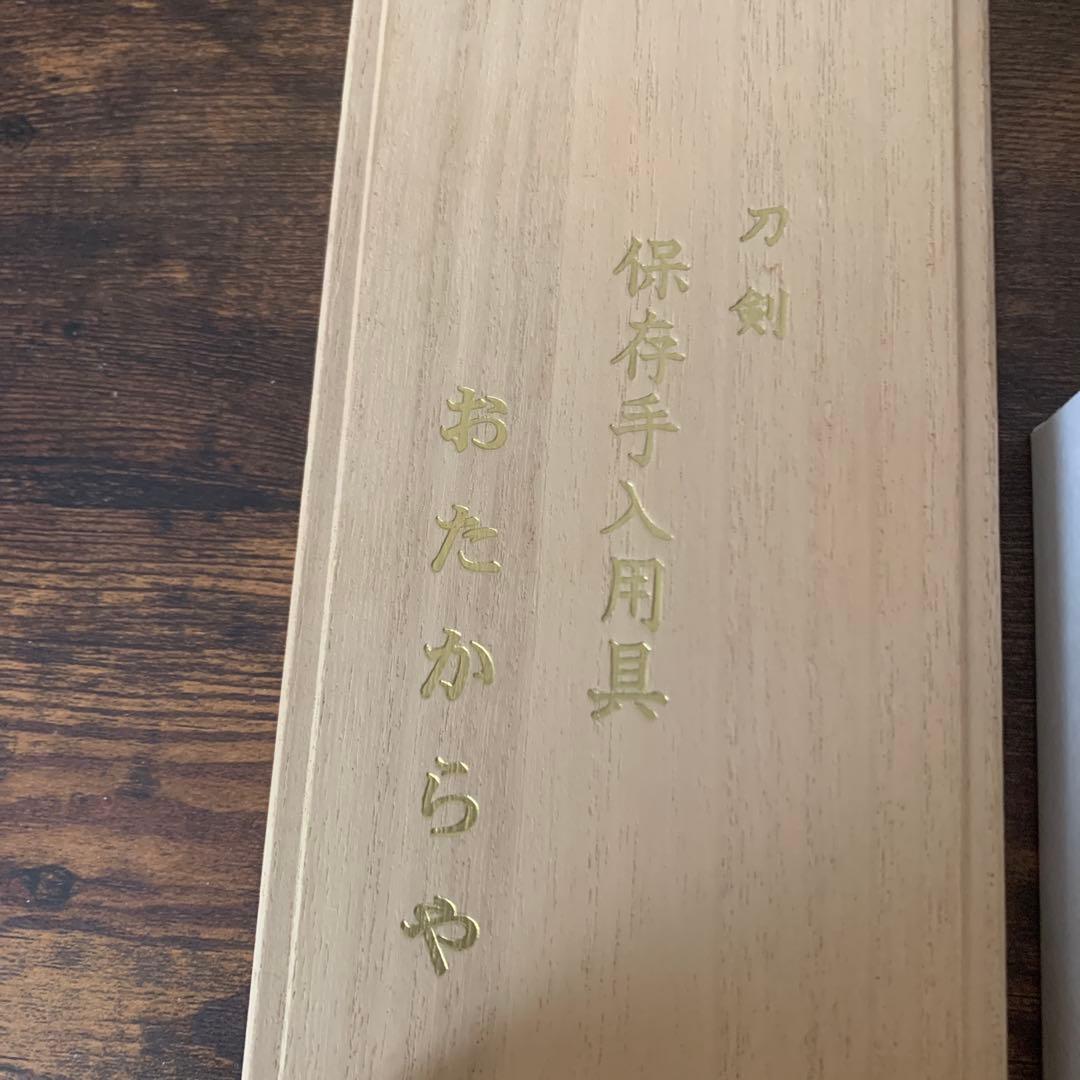 刀剣
保存手入用具
おたからや